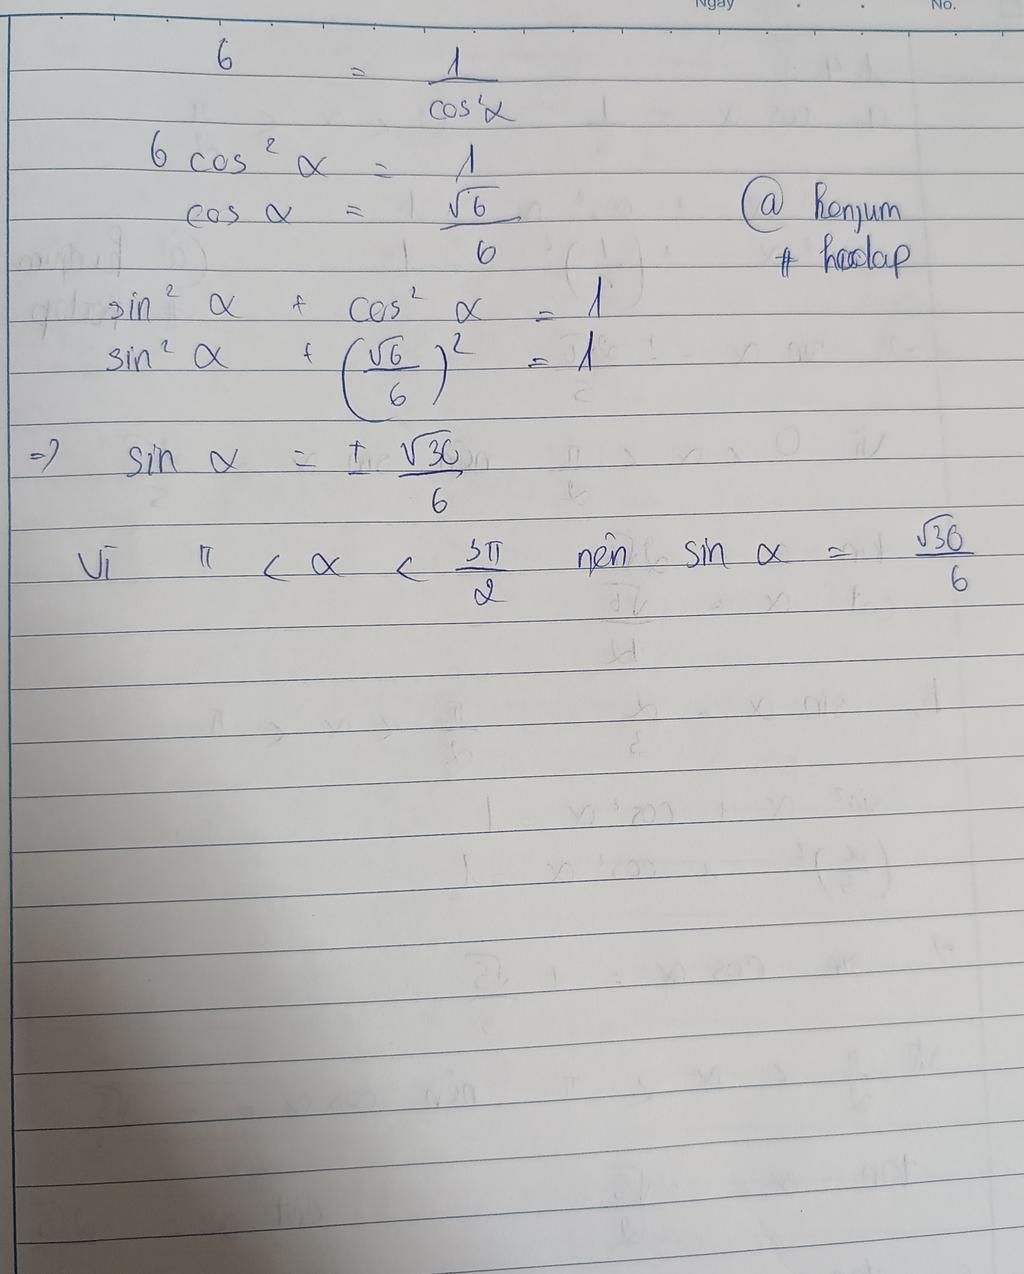 Ngày . . No.
6 = 1/cos²α
6 cos² α = 1
cos α = √6/6
@ henjum
# hoclap
sin² α + cos² α = 1
sin² α + (√6/6)² = 1
=> sin α = ± √30/6
Vì π < α < 3π/2 nên sin α = √30/6